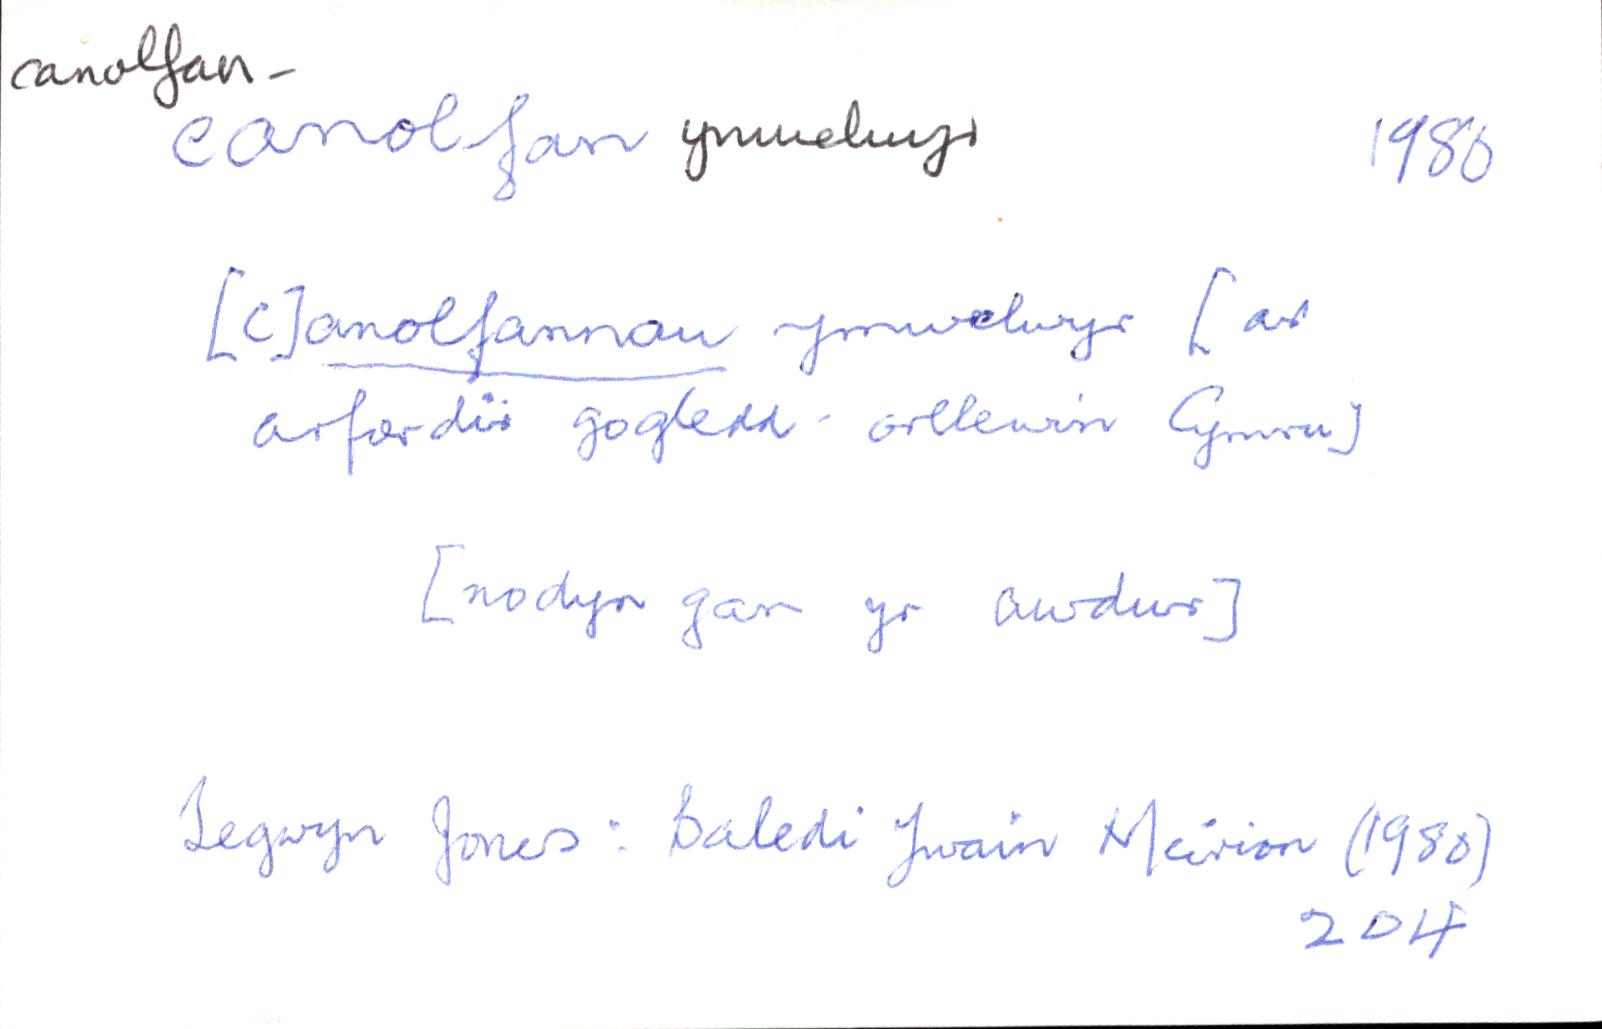 canolfan-
canolfan ymwelwyr 1980
[C]anolfannau ymwelwyr [ar
arfordir gogledd-orllewin Cymru]
[nodyn gan yr awdur]
Tegwyn Jones: Baledi Ywain Meirion (1980)
204